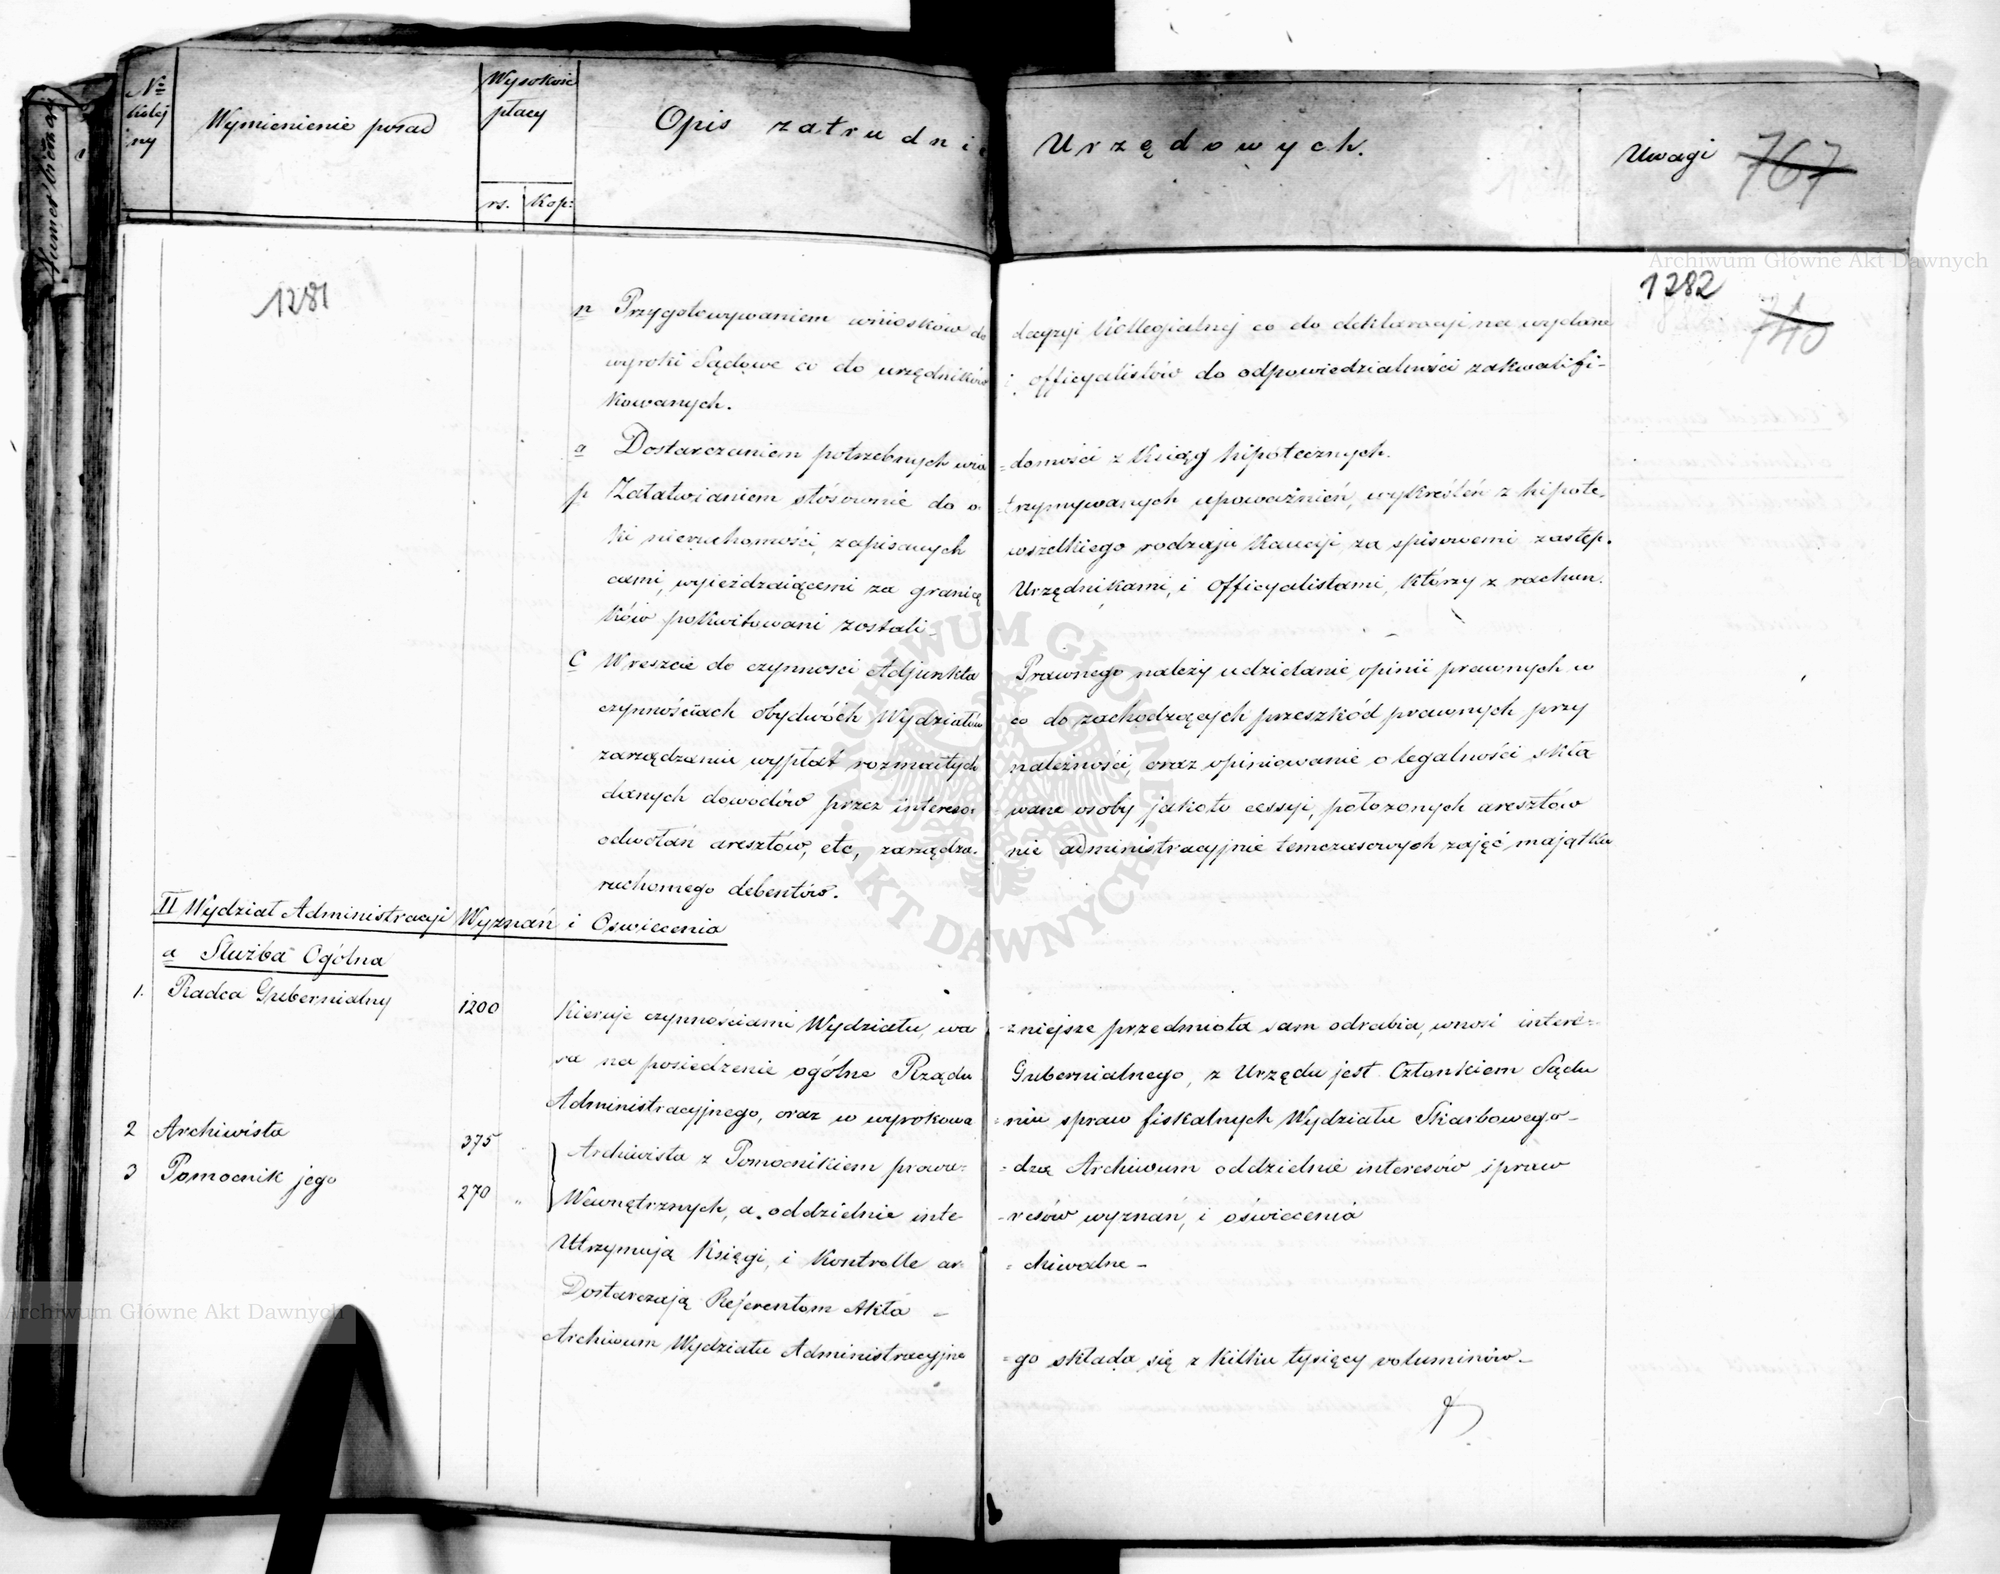 № kolej ny
Wymienienie posad
Wysokość płacy
rs. Kop:
Opis zatrudnie
Urzędowych.
Uwagi
767
1281
1282
740
n Przygotowywaniem wniosków do decyzyi Kollegialnej co do deklaracyi na wydane
wyroki Sądowe co do urzędników i officyalistów do odpowiedzialności zakwalifi-
kowanych.
o Dostarczaniem potrzebnych wia=domości z Ksiąg hipotecznych.
p Załatwianiem stósownie do o=trzymywanych upoważnień, wykreśleń z hipote-
ki nieruchomości, zapisanych wszelkiego rodzaju Kaucyi, za spisowemi zastęp-
cami, wyjeżdzaiącemi za granicę Urzędnikami, i Officyalistami, którzy z rachun-
ków pokwitowani zostali-
C Wreszcie do czynności Adjunkta Prawnego należy udzielanie opinii prawnych w
czynnościach obydwóch Wydziałów co do zachodzących przeszkód prawnych przy
zarządzaniu wypłat rozmaitych należności, oraz opiniowanie o legalności skła
danych dowodów przez intereso-wane osoby jakoto cessyi, położonych aresztów
odwołań aresztów, etc, zarządza-nie administracyjnie temczasowych zajęć majątku
ruchomego debentów.
II Wydział Administracyi Wyznań i Oswiecenia
a Służba Ogólna
1. Radca Gubernialny 1200 Kieruje czynnościami Wydziału, wa-żniejsze przedmiota sam odrabia, wnosi intere=
sa na posiedzenie ogólne Rządu Gubernialnego, z Urzędu jest Członkiem Sądu
Administracyjnego, oraz w wyrokowa=niu spraw fiskalnych Wydziału Skarbowego-
2 Archiwista 375 Archiwista z Pomocnikiem prowa=dzą Archiwum oddzielnie interesów spraw
3 Pomocnik jego 270 " Wewnętrznych, a oddzielnie inte-resów wyznań, i oświecenia
Utrzymują Księgi, i Kontrolle ar=chiwalne-
Dostarczają Referentom Akta -
Archiwum Wydziału Administracyjne=go składa się z kilku tysięcy voluminów-
Archiwum Główne Akt Dawnych
Archiwum Główne Akt Dawnych
ARCHIWUM GŁÓWNE AKT DAWNYCH